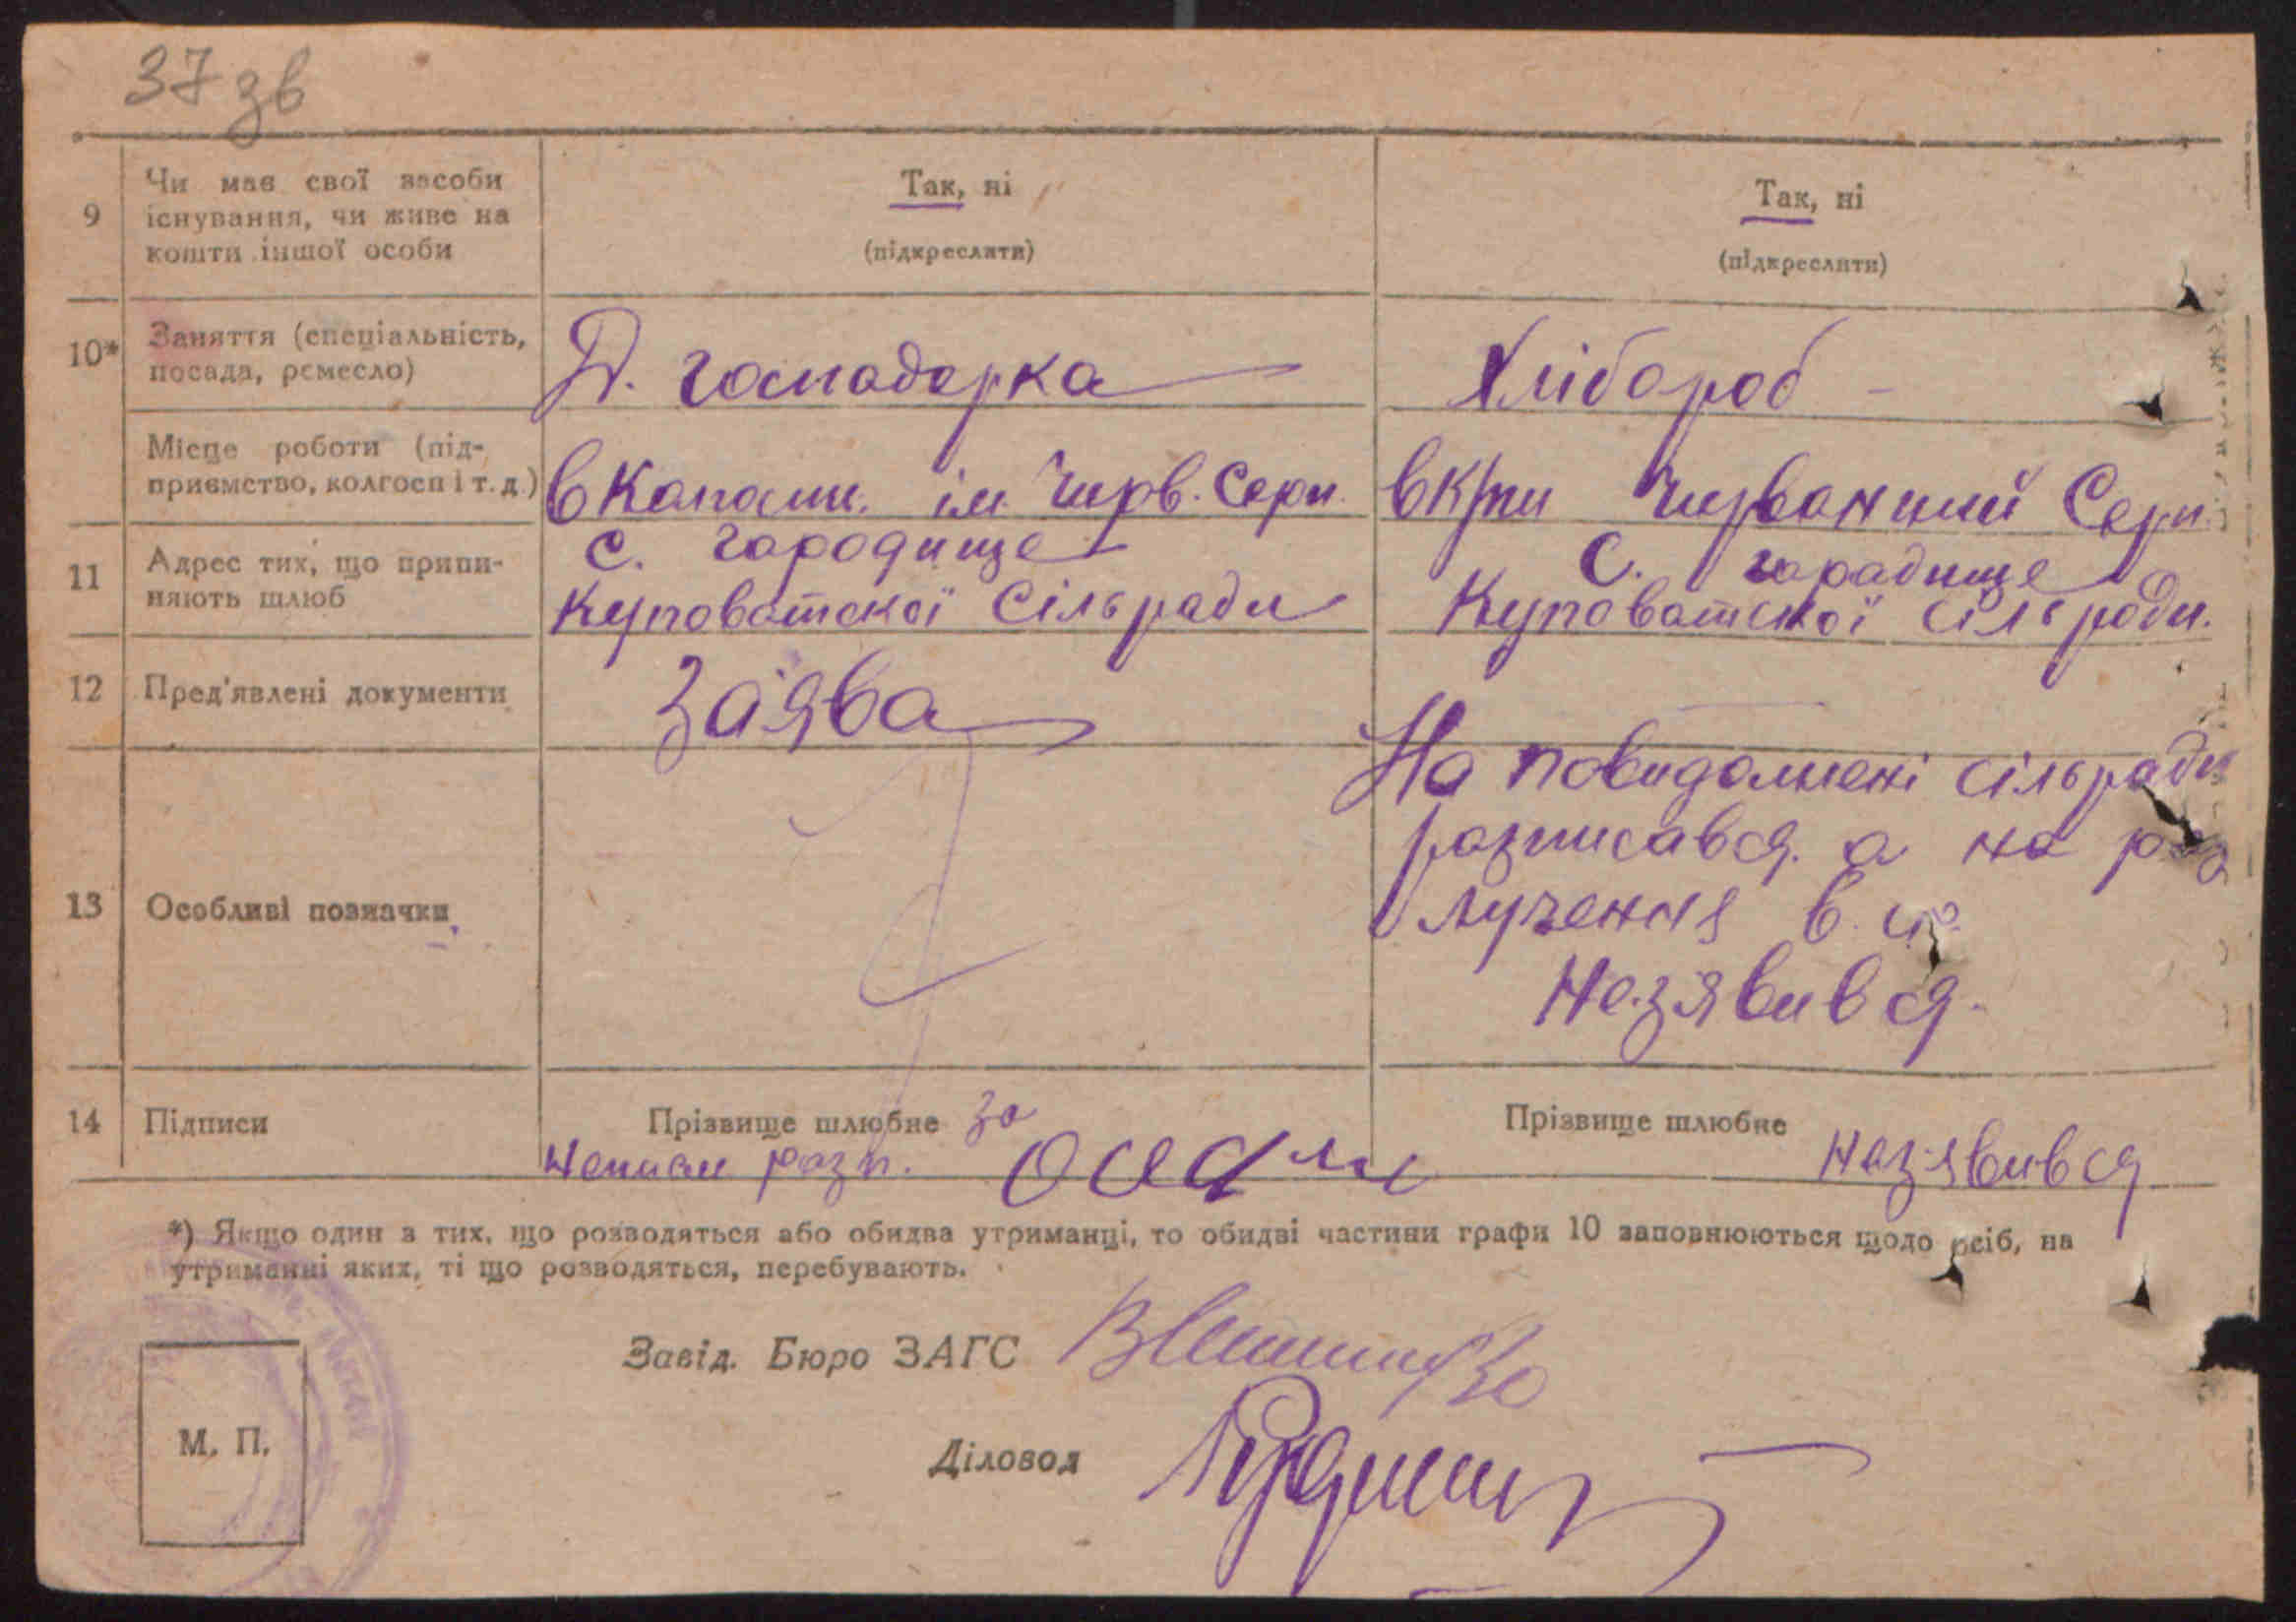 37 зв
9
Чи має свої засоби
існування, чи живе на
кошти іншої особи
Так, ні
(підкреслити)
Так, ні
(підкреслити)
10*
Заняття (спеціальність,
посада, ремесло)
Д. господорка
Хлібороб -
Місце роботи (під-
приємство, колгосп і т. д.)
в Компан. ім. Черв. Серп.
в к/сп Червоний Серп.
11
Адрес тих, що припи-
няють шлюб
с. городище
Куповатської Сільради
с. городище
Куповатської сільради.
12
Пред'явлені документи
Заява
13
Особливі позначки
На повидомлені сільради
розписався. а на роз
лучення в
Незявився.
14
Підписи
Прізвище шлюбне за
неписм розп.
Прізвище шлюбне
незявився
*) Якщо один з тих, що розводяться або обидва утриманці, то обидві частини графи 10 заповнюються щодо осіб, на
утриманні яких, ті що розводяться, перебувають.
Завід. Бюро ЗАГС
Діловод
М. П.